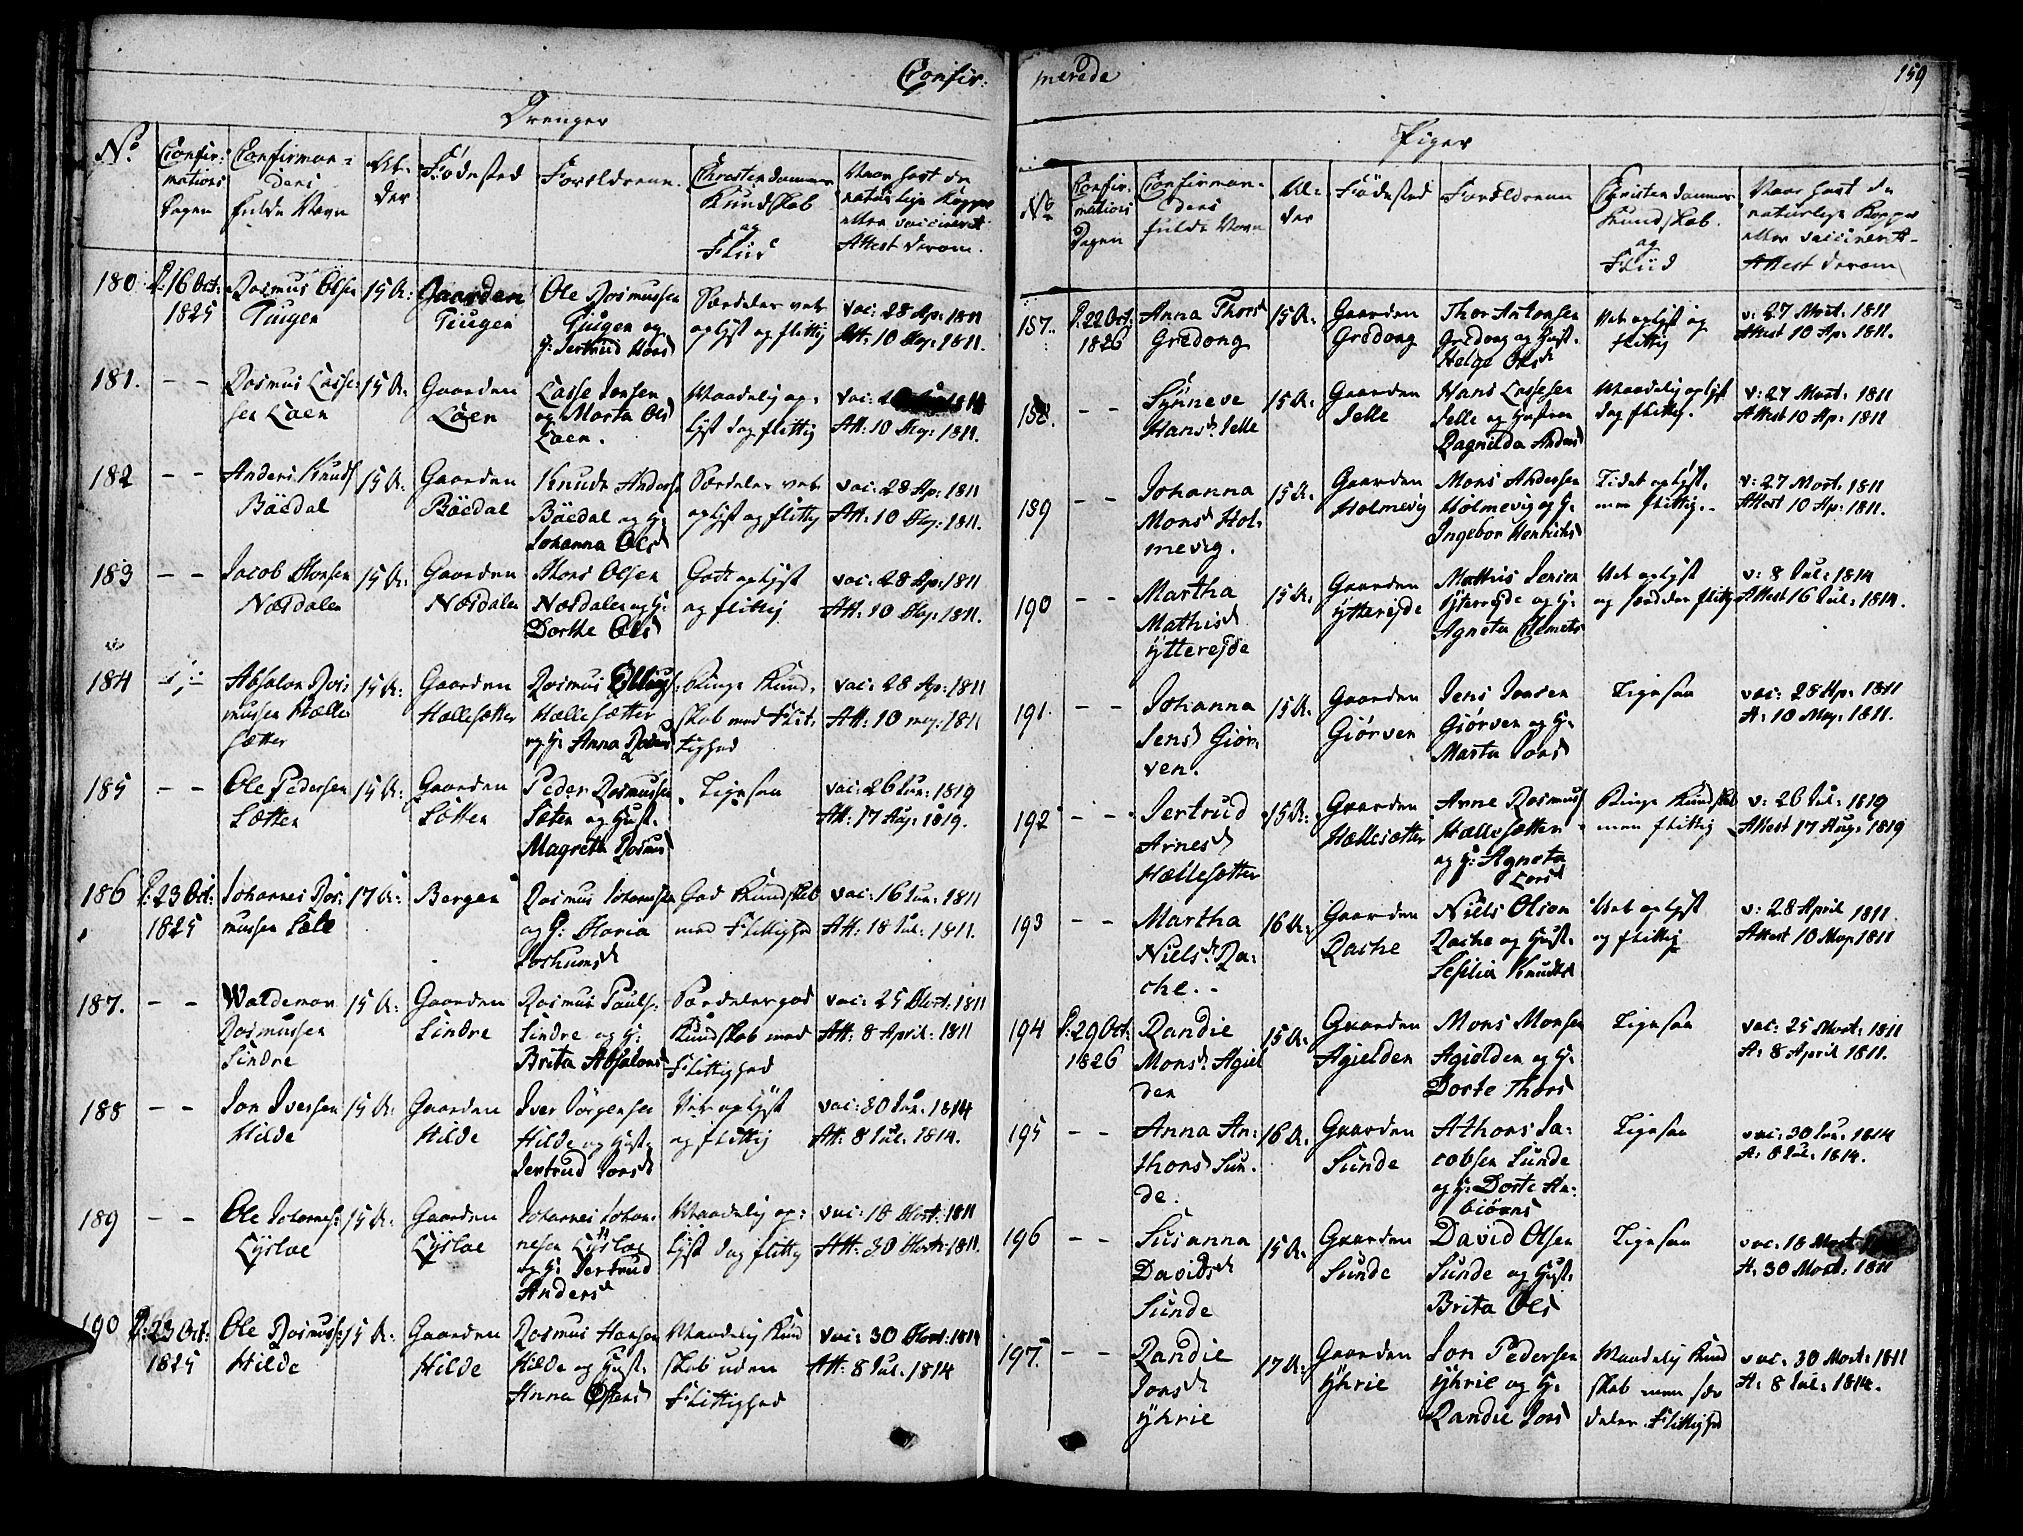 Confir-
Drenger
No
Confir-
mations
Dagen
Confirman-
dens
fulde Navn
Al-
der
Födested
Forældrene.
Christendoms
Kundskab
og
Fliid
Naar havt de
naturlige Kopper
eller vaccineret
Attest derom.
180. D: 16 Oct: 1825
Rasmus Olsen
Tiugen
15 A:
Gaarden
Tiugen
Ole Rasmussen
Tiugen og
H: Jertrud Hansd
Særdeles vel
oplyst og flittig
vac: 28 Ap: 1811
Att: 10 May: 1811.
181. – –
Rasmus Lasse-
sen Loen
15 A:
Gaarden
Loen
Lasse Jensen
og Marta Olsd
Loen.
Maadelig op-
lyst dog flittig
Att: 10 May: 1811.
182 – –
Anders Knuds
Böedal
15 A:
Gaarden
Böedal
Knud Anderse
Böedal og H:
Johanna Olsd
Særdeles vel
oplyst og flittig
vac: 28 Ap: 1811
Att: 10 May: 1811.
183 – –
Jacob Monsen
Næsdalen
15 A:
Gaarden
Næsdalen
Mons Olsen
Næsdalen og H:
Dorthe Olsd
Godt oplyst
og flittig
vac: 28 Ap: 1811
Att: 10 May: 1811.
184 – –
Absalon Ras-
mussen Hælle
sætter
15 A:
Gaarden
Hællesætter
Rasmus
Hællesætter
og H: Anna Rasmusd
Ringe Kund-
skab med Flit-
tighed
vac: 28 Ap: 1811
Att: 10 may: 1811
185 – –
Ole Pedersen
Sætten
15 A:
Gaarden
Sætten
Peder Rasmussen
Sæten og Hust:
Magrete Rasmusd
Ligesaa
vac: 26 Jun: 1819
Att: 17 Aug: 1819.
186 D: 23 Oct: 1825
Johannes Ras-
mussen
17 A:
Bergen
Rasmus Johannessen
og H: Maria
God Kundskab
med Flittighed
vac: 16 Jun: 1811
Att: 18 Jul: 1811.
187. – –
Waldemar
Rasmussen
Sindre
15 A:
Gaarden
Sindre
Rasmus Pauls:
Sindre og H:
Brita Absalonsd
Særdeles god
Kundskab med
Flittighed
vac: 25 Mart: 1811
Att: 8 April: 1811
188 – –
Jon Iversen
Hilde
15 A:
Gaarden
Hilde
Iver Jörgensen
Hilde og Hust:
Jertrud Jonsd
Vel oplyst
og flittig
vac: 30 Jun: 1814
Att: 8 Jul: 1814.
189 – –
Ole Johannes:
Lysloe
15 A:
Gaarden
Lysloe
Johannes Johan-
nesen Lysloe
og H: Jertrud
Andersd
Maadelig op-
lyst dog flittig
vac: 18 Mart: 1811
Att: 30 Mart: 1811.
190 D: 23 Oct: 1825
Ole Rasmusse
Hilde
15 A:
Gaarden
Hilde
Rasmus Hansen
Hilde og Hust:
Anna
Maadelig Kund
skab uden
Flittighed
vac: 30 Mart: 1811
Att: 8 Jul: 1814
merede
159
Piger
No
Confir-
mations
Dagen
Confirman-
dens
fulde Navn
Al-
der
Födested
Forældrene
Christendoms
Kundskab.
og
Fliid
Naar havt de
naturlige Kopper
eller vaccineret-
Attest derom
187. D: 22 Oct: 1826
Anna Thorsd
Gredong
15 A:
Gaarden
Gredong
Thor Antonsen
Gredong og Hust:
Helge Olsd
Vel oplyst og
flittig
v: 27 Mart: 1811
Attest 10 Ap: 1811.
188. – –
Synneve
Hansd: Selle
15 A:
Gaarden
Selle
Hans Lassesen
Selle og Hustrue
Ragnilda Andersd
Maadelig oplyst
dog flittig.
v: 27 Mart: 1811
Attest 10 Ap: 1811
189 – –
Johanna
Monsd Hol-
mevig.
15 A:
Gaarden
Holmevig
Mons Andersen
Holmevig og H:
Ingebor Henriksd
Lidet oplyst.
men flittig.
v: 27 Mart: 1811
Attest 10 Ap: 1811.
190 – –
Martha
Mathisd
ytterejde
15 A:
Gaarden
ytterejde
Mathis Jensen
ytterejde og H:
Agneta Clemets
Vel oplyst
og særdeles flittig
v: 8 Jul: 1814
Attest 16 Jul: 1814.
191. – –
Johanna
Jensd Giör-
ven.
15 A:
Gaarden
Giörven
Jens Jensen
Giörven og H:
Marta Jonsd
Ligesaa
vac: 28 Ap: 1811
A: 10 May: 1811.
192 – –
Jertrud
Arnesd
Hællesætter
15 A:
Gaarden
Hællesætter
Arne Rasmuss
Hællesætter
og H: Agneta
Larsd
Ringe Kundskab
men flittig
v: 26 Jul: 1819
Attest 17 Aug: 1819
193 – –
Martha
Nielsd: Ra-
che.
16 A:
Gaarden
Rache
Niels Olsen
Rache og Hust:
Sesilia Knudsd
Vel oplyst
og flittig
v: 28 April 1811.
Attest 10 May 1811
194 D: 29 Oct: 1826
Randie
Monsd: Agiel
den
15 A:
Gaarden
Agielden
Mons Monsen
Agielden og H:
Dorte Thorsd
Ligesaa
vac: 25 Mart: 1811
A: 8 April 1811.
195 – –
Anna An-
thonsd Sun-
de.
16 A:
Gaarden
Sunde
Athons Ja-
cobsen Sunde
og H: Dorte An-
biörns
Ligesaa
vac: 30 Jun: 1814
A: 8 Jul: 1814.
196 – –
Susanna
Davidsd
Sunde
15 A:
Gaarden
Sunde
David Olsen
Sunde og Hust:
Brita Ols
Ligesaa
vac: 18 Mart
A: 30 Mart: 1811
197. – –
Randie
Jonsd
yhrie
17 A:
Gaarden
yhrie
Jon Pedersen
yhrie og H:
Randie Jonsd
Maadelig Kund
skab men sær
deles Flittighed
vac: 30 Mart: 1811
A: 8 Jul: 1814.